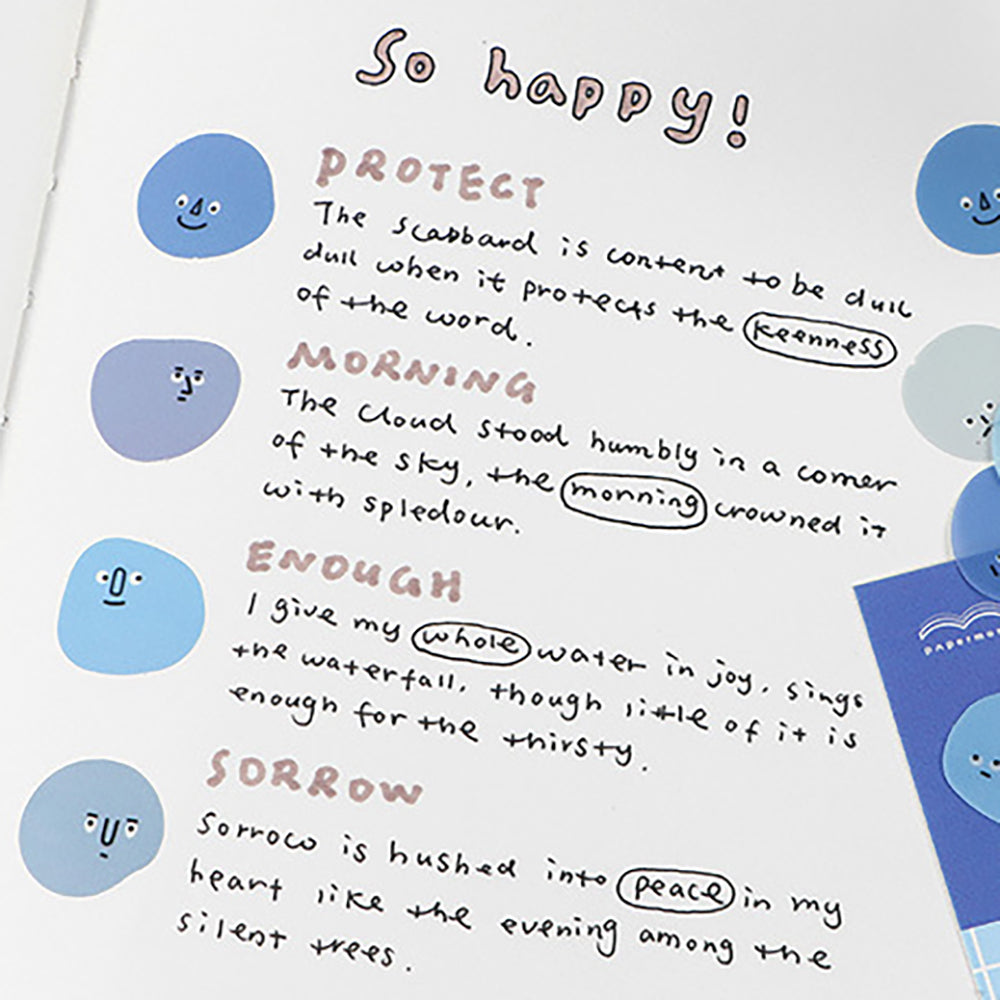 So happy!
PROTECT
The scabbard is content to be dull
dull when it protects the keenness
of the word.
MORNING
The cloud stood humbly in a corner
of the sky, the morning crowned it
with spledour.
ENOUGH
I give my whole water in joy, sings
the waterfall, though little of it is
enough for the thirsty.
SORROW
Sorrow is hushed into peace in my
heart like the evening among the
silent trees.